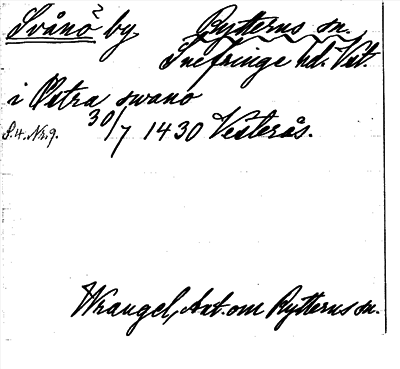 Svånö by. Rytterns sn.
Snefringe hd. Vst.
i Østra swano
S.4. Nr. 9. 30/7 1430 Vesterås.
Wrangel, Ant. om Rytterns sn.